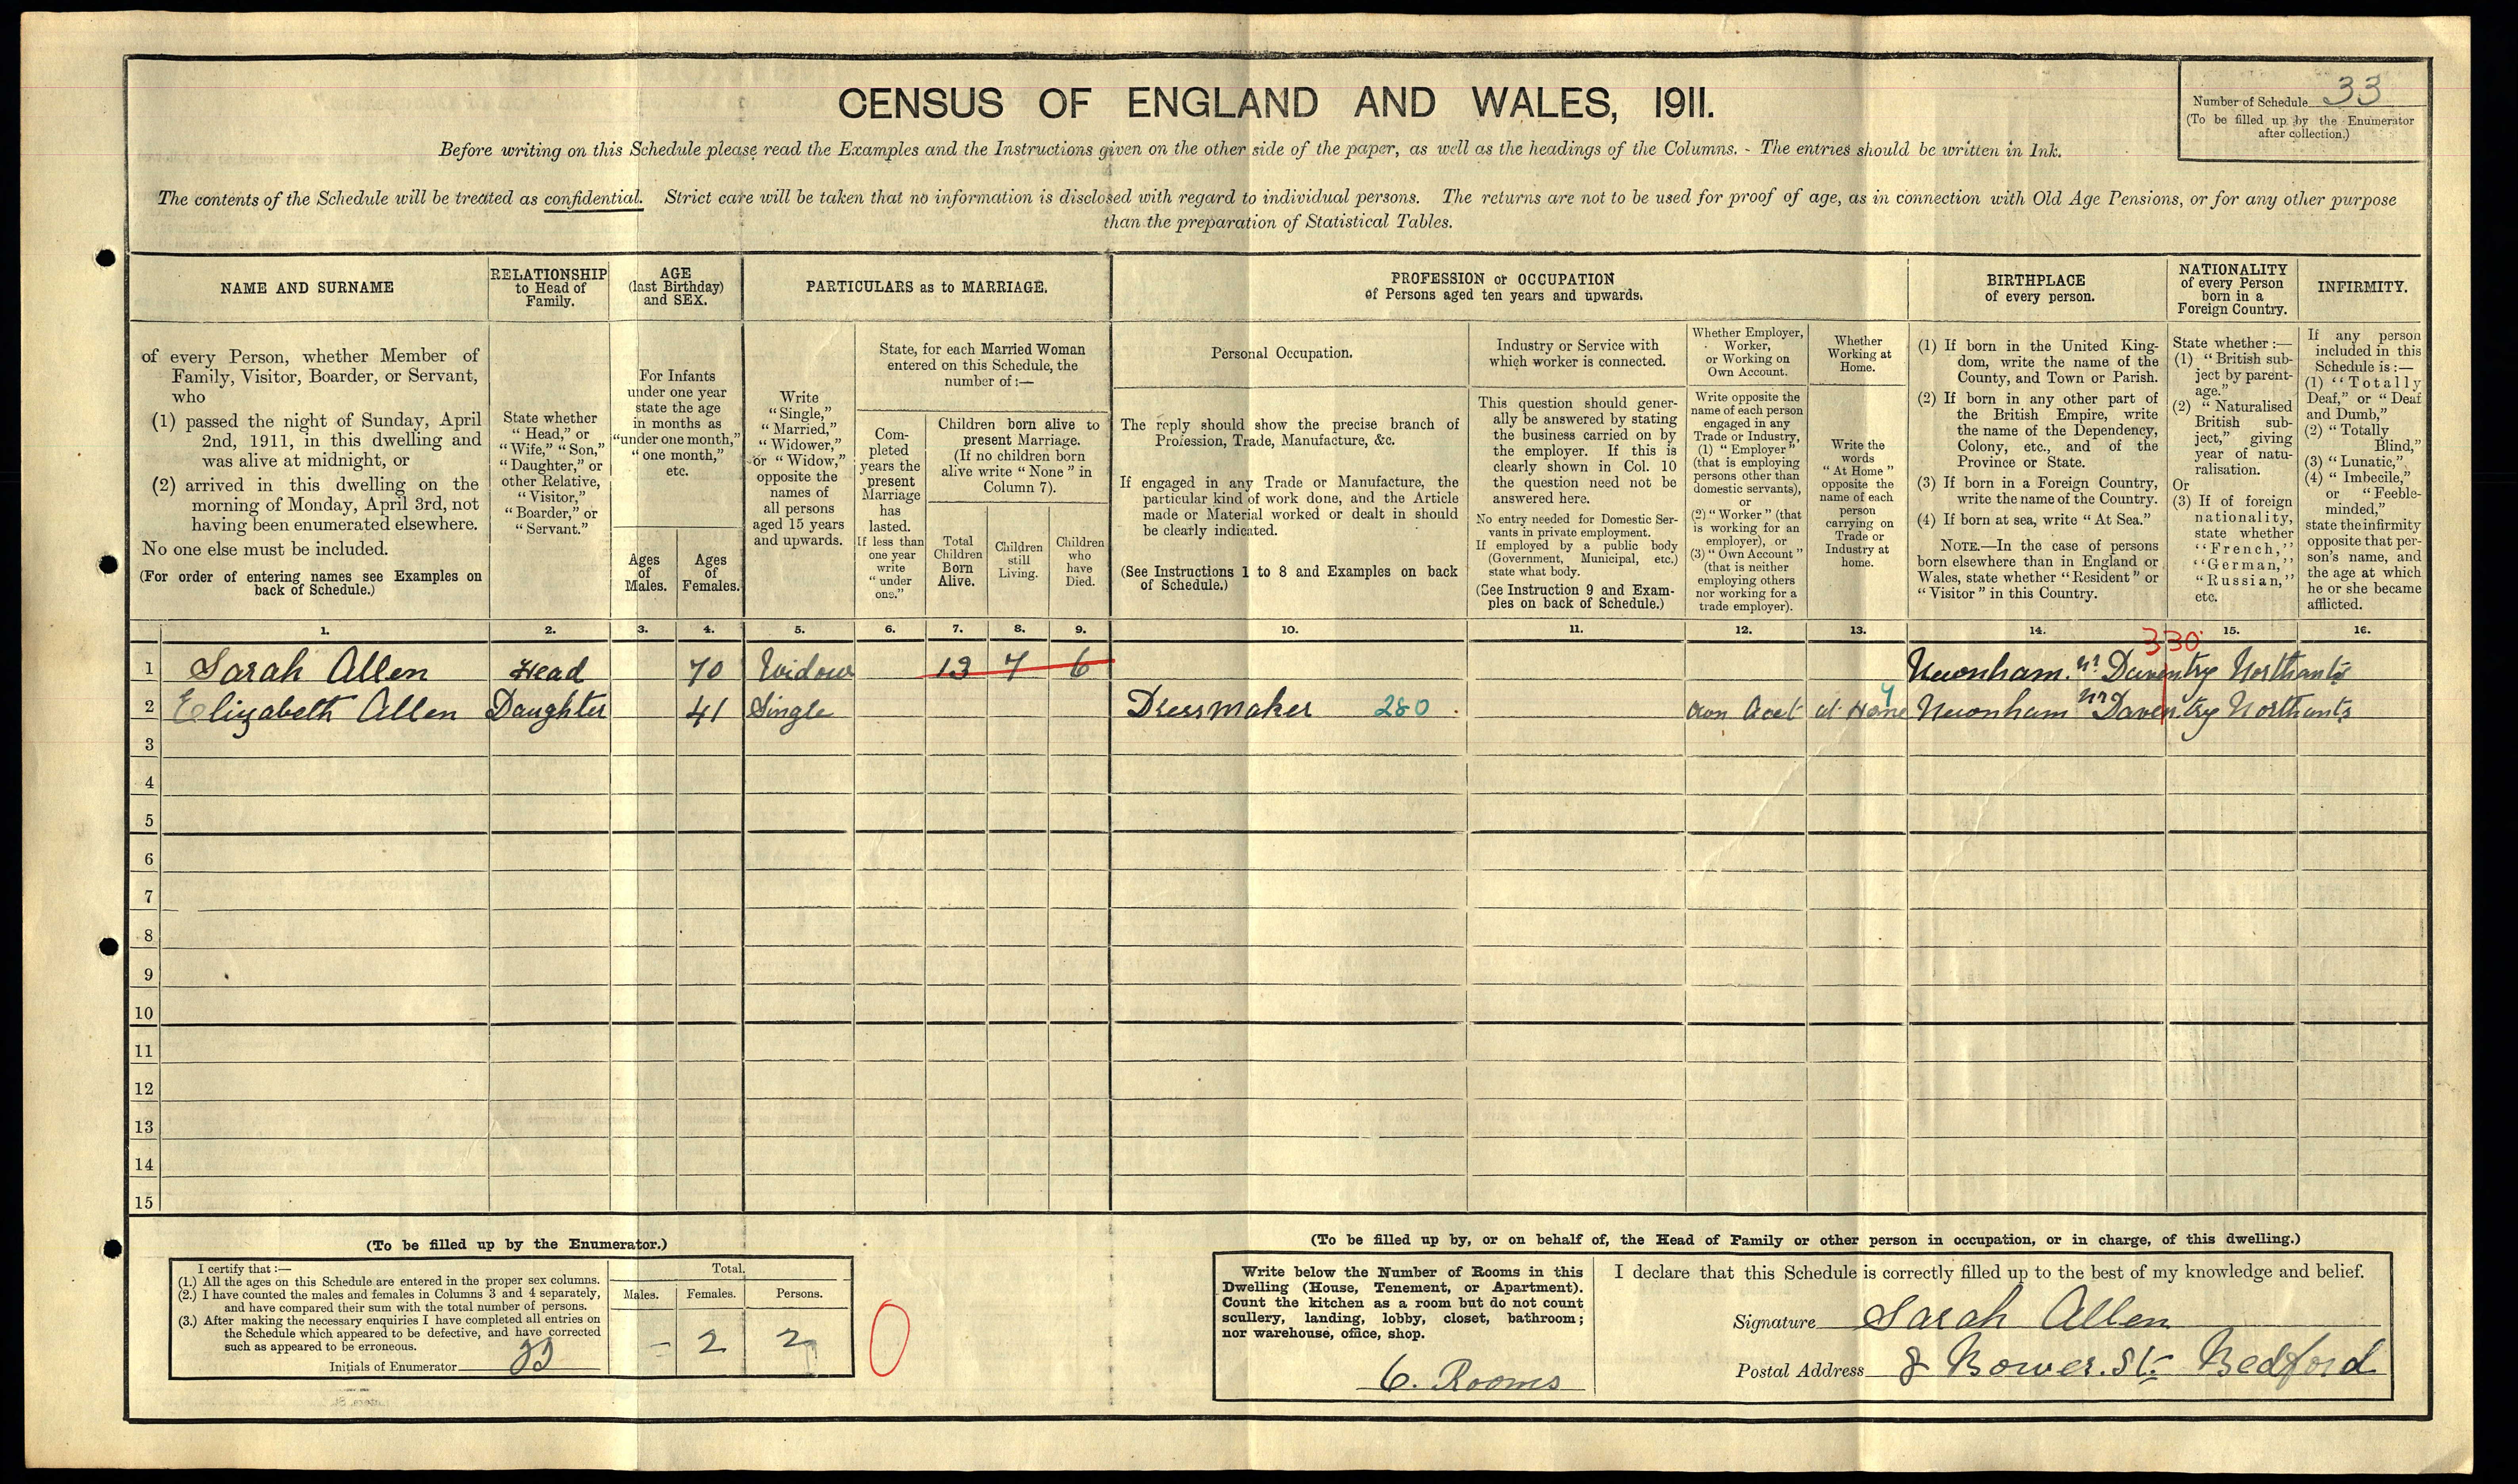 CENSUS OF ENGLAND AND WALES, 1911.
Number of Schedule 33
(To be filled up by the Enumerator
after collection.)
Before writing on this Schedule please read the Examples and the Instructions given on the other side of the paper, as well as the headings of the Columns. - The entries should be written in Ink.
The contents of the Schedule will be treated as confidential. Strict care will be taken that no information is disclosed with regard to individual persons. The returns are not to be used for proof of age, as in connection with Old Age Pensions, or for any other purpose
than the preparation of Statistical Tables.
NAME AND SURNAME
of every Person, whether Member of
Family, Visitor, Boarder, or Servant,
who
(1) passed the night of Sunday, April
2nd, 1911, in this dwelling and
was alive at midnight, or
(2) arrived in this dwelling on the
morning of Monday, April 3rd, not
having been enumerated elsewhere.
No one else must be included.
(For order of entering names see Examples on
back of Schedule.)
RELATIONSHIP
to Head of
Family.
State whether
"Head," or
"Wife," "Son,"
"Daughter," or
other Relative,
"Visitor,"
"Boarder," or
"Servant."
AGE
(last Birthday)
and SEX.
For Infants
under one year
state the age
in months as
"under one month,"
"one month,"
etc.
Ages
of
Males.
Ages
of
Females.
PARTICULARS as to MARRIAGE.
Write
"Single,"
"Married,"
"Widower,"
or "Widow,"
opposite the
names of
all persons
aged 15 years
and upwards.
State, for each Married Woman
entered on this Schedule, the
number of :—
Com-
pleted
years the
present
Marriage
has
lasted.
If less than
one year
write
"under
one."
Children born alive to
present Marriage.
(If no children born
alive write "None" in
Column 7).
Total
Children
Born
Alive.
Children
still
Living.
Children
who
have
Died.
PROFESSION or OCCUPATION
of Persons aged ten years and upwards.
Personal Occupation.
The reply should show the precise branch of
Profession, Trade, Manufacture, &c.
If engaged in any Trade or Manufacture, the
particular kind of work done, and the Article
made or Material worked or dealt in should
be clearly indicated.
(See Instructions 1 to 8 and Examples on back
of Schedule.)
Industry or Service with
which worker is connected.
This question should gener-
ally be answered by stating
the business carried on by
the employer. If this is
clearly shown in Col. 10
the question need not be
answered here.
No entry needed for Domestic Ser-
vants in private employment.
If employed by a public body
(Government, Municipal, etc.)
state what body.
(See Instruction 9 and Exam-
ples on back of Schedule.)
Whether Employer,
Worker,
or Working on
Own Account.
Write opposite the
name of each person
engaged in any
Trade or Industry,
(1) "Employer"
(that is employing
persons other than
domestic servants),
or
(2) "Worker" (that
is working for an
employer), or
(3) "Own Account"
(that is neither
employing others
nor working for a
trade employer).
Whether
Working at
Home.
Write the
words
"At Home"
opposite the
name of each
person
carrying on
Trade or
Industry at
home.
BIRTHPLACE
of every person.
(1) If born in the United King-
dom, write the name of the
County, and Town or Parish.
(2) If born in any other part of
the British Empire, write
the name of the Dependency,
Colony, etc., and of the
Province or State.
(3) If born in a Foreign Country,
write the name of the Country.
(4) If born at sea, write "At Sea."
NOTE.—In the case of persons
born elsewhere than in England or
Wales, state whether "Resident" or
"Visitor" in this Country.
NATIONALITY
of every Person
born in a
Foreign Country.
State whether :—
(1) "British sub-
ject by parent-
age."
(2) "Naturalised
British sub-
ject," giving
year of natu-
ralisation.
Or
(3) If of foreign
nationality,
state whether
"French,"
"German,"
"Russian,"
etc.
INFIRMITY.
If any person
included in this
Schedule is :—
(1) "Totally
Deaf," or "Deaf
and Dumb,"
(2) "Totally
Blind,"
(3) "Lunatic,"
(4) "Imbecile,"
or "Feeble-
minded,"
state the infirmity
opposite that per-
son's name, and
the age at which
he or she became
afflicted.
1. 2. 3. 4. 5. 6. 7. 8. 9. 10. 11. 12. 13. 14. 15. 16.
330
1 Sarah Allen Head 70 Widow 13 7 6 Newnham nr Daventry Northants
2 Elizabeth Allen Daughter 41 Single Dressmaker 280 Own Acct at Home Newnham nr Daventry Northants
3
4
5
6
7
8
9
10
11
12
13
14
15
(To be filled up by the Enumerator.)
I certify that :—
(1.) All the ages on this Schedule are entered in the proper sex columns.
(2.) I have counted the males and females in Columns 3 and 4 separately,
and have compared their sum with the total number of persons.
(3.) After making the necessary enquiries I have completed all entries on
the Schedule which appeared to be defective, and have corrected
such as appeared to be erroneous.
Initials of Enumerator
Total.
Males. Females. Persons.
– 2 2
0
(To be filled up by, or on behalf of, the Head of Family or other person in occupation, or in charge, of this dwelling.)
Write below the Number of Rooms in this
Dwelling (House, Tenement, or Apartment).
Count the kitchen as a room but do not count
scullery, landing, lobby, closet, bathroom;
nor warehouse, office, shop.
6. Rooms
I declare that this Schedule is correctly filled up to the best of my knowledge and belief.
Signature Sarah Allen
Postal Address 8 Bower. St. Bedford